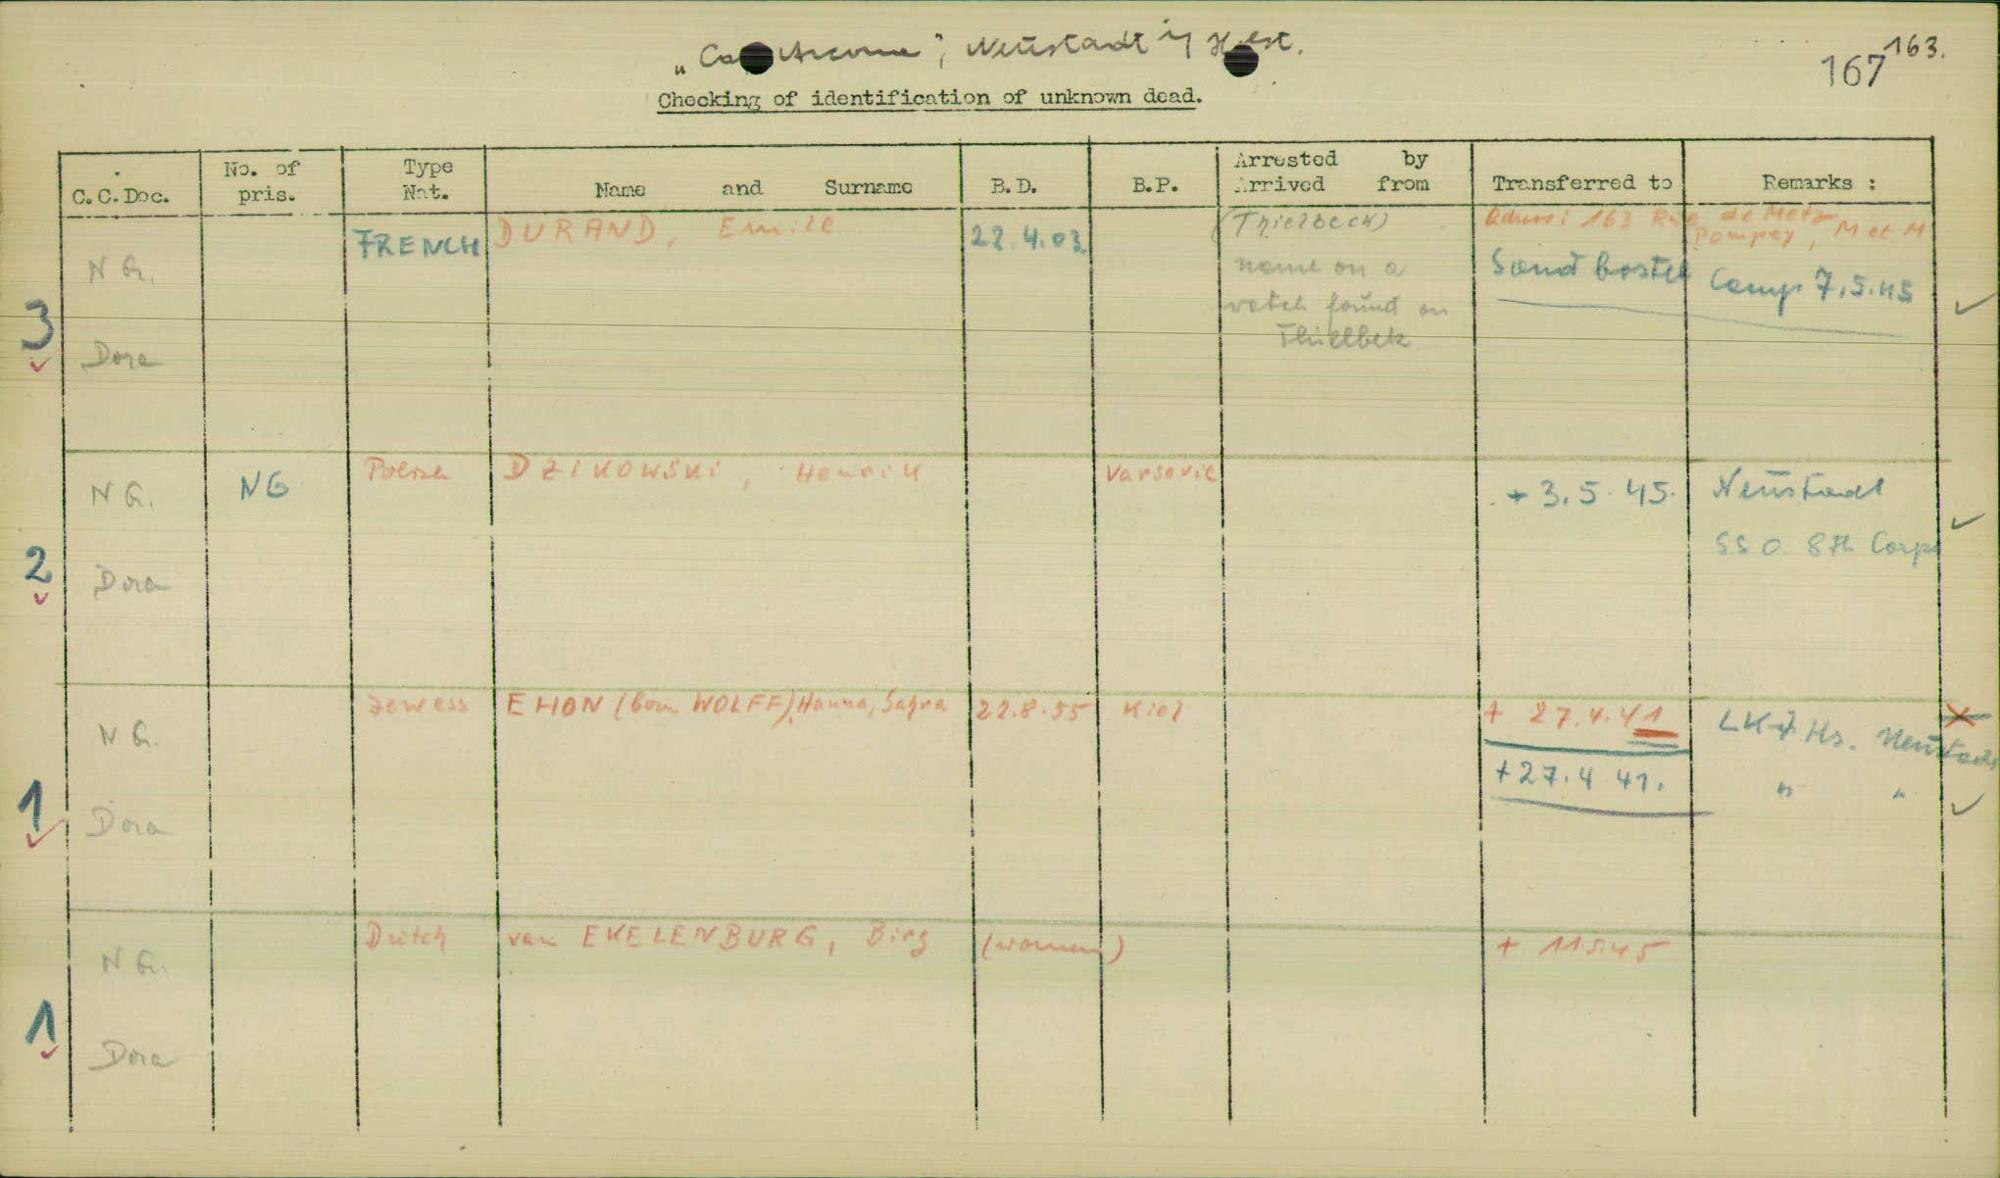 „Cap Arcona“, Neustadt i/ Holst.
167 163.
Checking of identification of unknown dead.
C.C.Doc. No. of pris. Type Nat. Name and Surname B.D. B.P. Arrested by Arrived from Transferred to Remarks :
3 N G. Dora FRENCH DURAND, Emile 22.4.03.
(Thielbeck)
name on a
watch found on
Thielbek
Adress: 163 Rue de Metz
Pompey, M et M
Sandbostel Camp 7.5.45
2 N G. Dora NG Polish DZIKOWSKI, Henrik Varsovie
+ 3.5.45. Neustadt
SS O. 8th Corps
1 N G. Dora Jewess EHON (born WOLFF), Hanna, 22.8.55 Kiel
+ 27.4.41 Hs. Neustadt
+27.4 41. " "
1 N G. Dora Dutch van EKELENBURG, Birg (woman) + 11.5.45